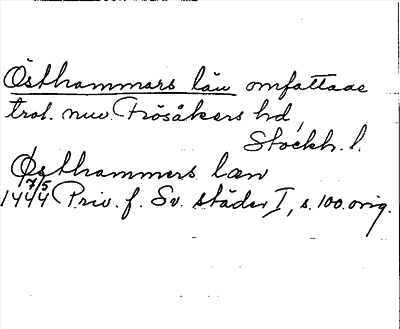 Östhammars län omfattade
trol. nuv. Frösåkers hd,
Stockh. l.
Østhammers læn
1444 7/5 Priv. f. Sv. städer I, s. 100. orig.